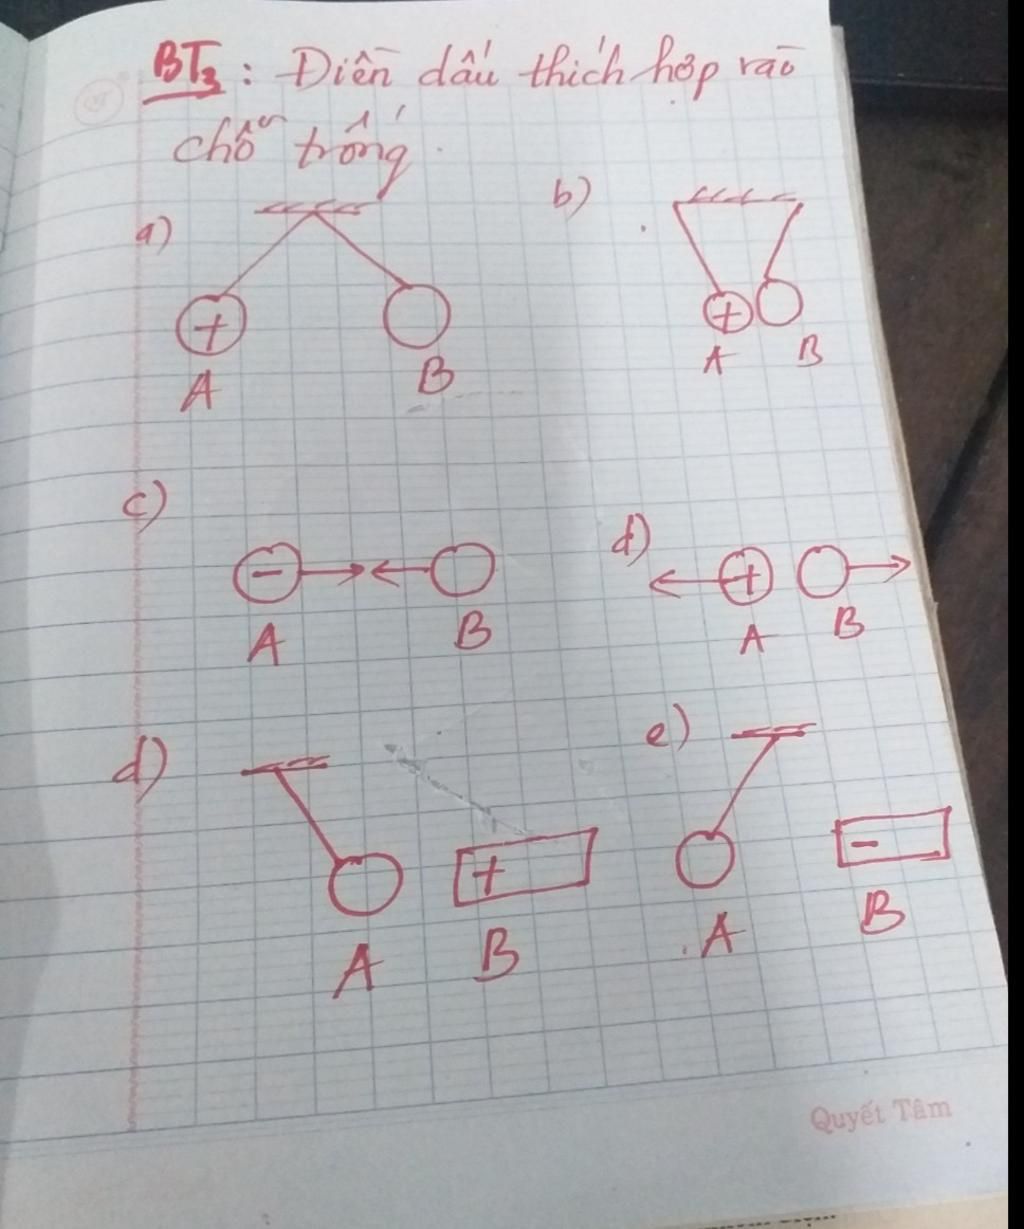 BT3 : Điền dấu thích hợp vào
chỗ trống.
a)
b)
+
A
B
+
A
B
c)
-
A
B
d)
+
A
B
d)
A
+
B
e)
A
-
B
Quyết Tâm